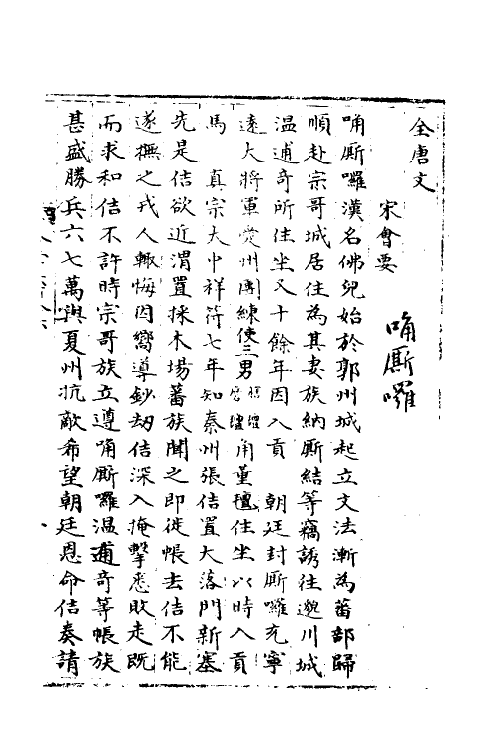 全唐文
宋會要
唃厮囉
唃厮囉漢名佛兒始於郭州城起立文法漸為蕃部歸
順赴宗哥城居住為其妻族納厮結等竊誘往邈川城
温逋奇所住坐又十餘年因入貢 朝廷封厮囉充寧
遠大將軍愛州團練使三男瞎氊磨氊角董氊住坐以時入貢
馬 真宗大中祥符七年知秦州張佶置大落門新寨
先是佶欲近渭置採木場蕃族聞之即徙帳去佶不能
遂撫之戎人輒悔因嚮導鈔劫佶深入掩擊悉敗走既
而求和佶不許時宗哥族立遵唃厮囉温逋奇等帳族
甚盛勝兵六七萬與夏州抗敵希望朝廷恩命佶奏請